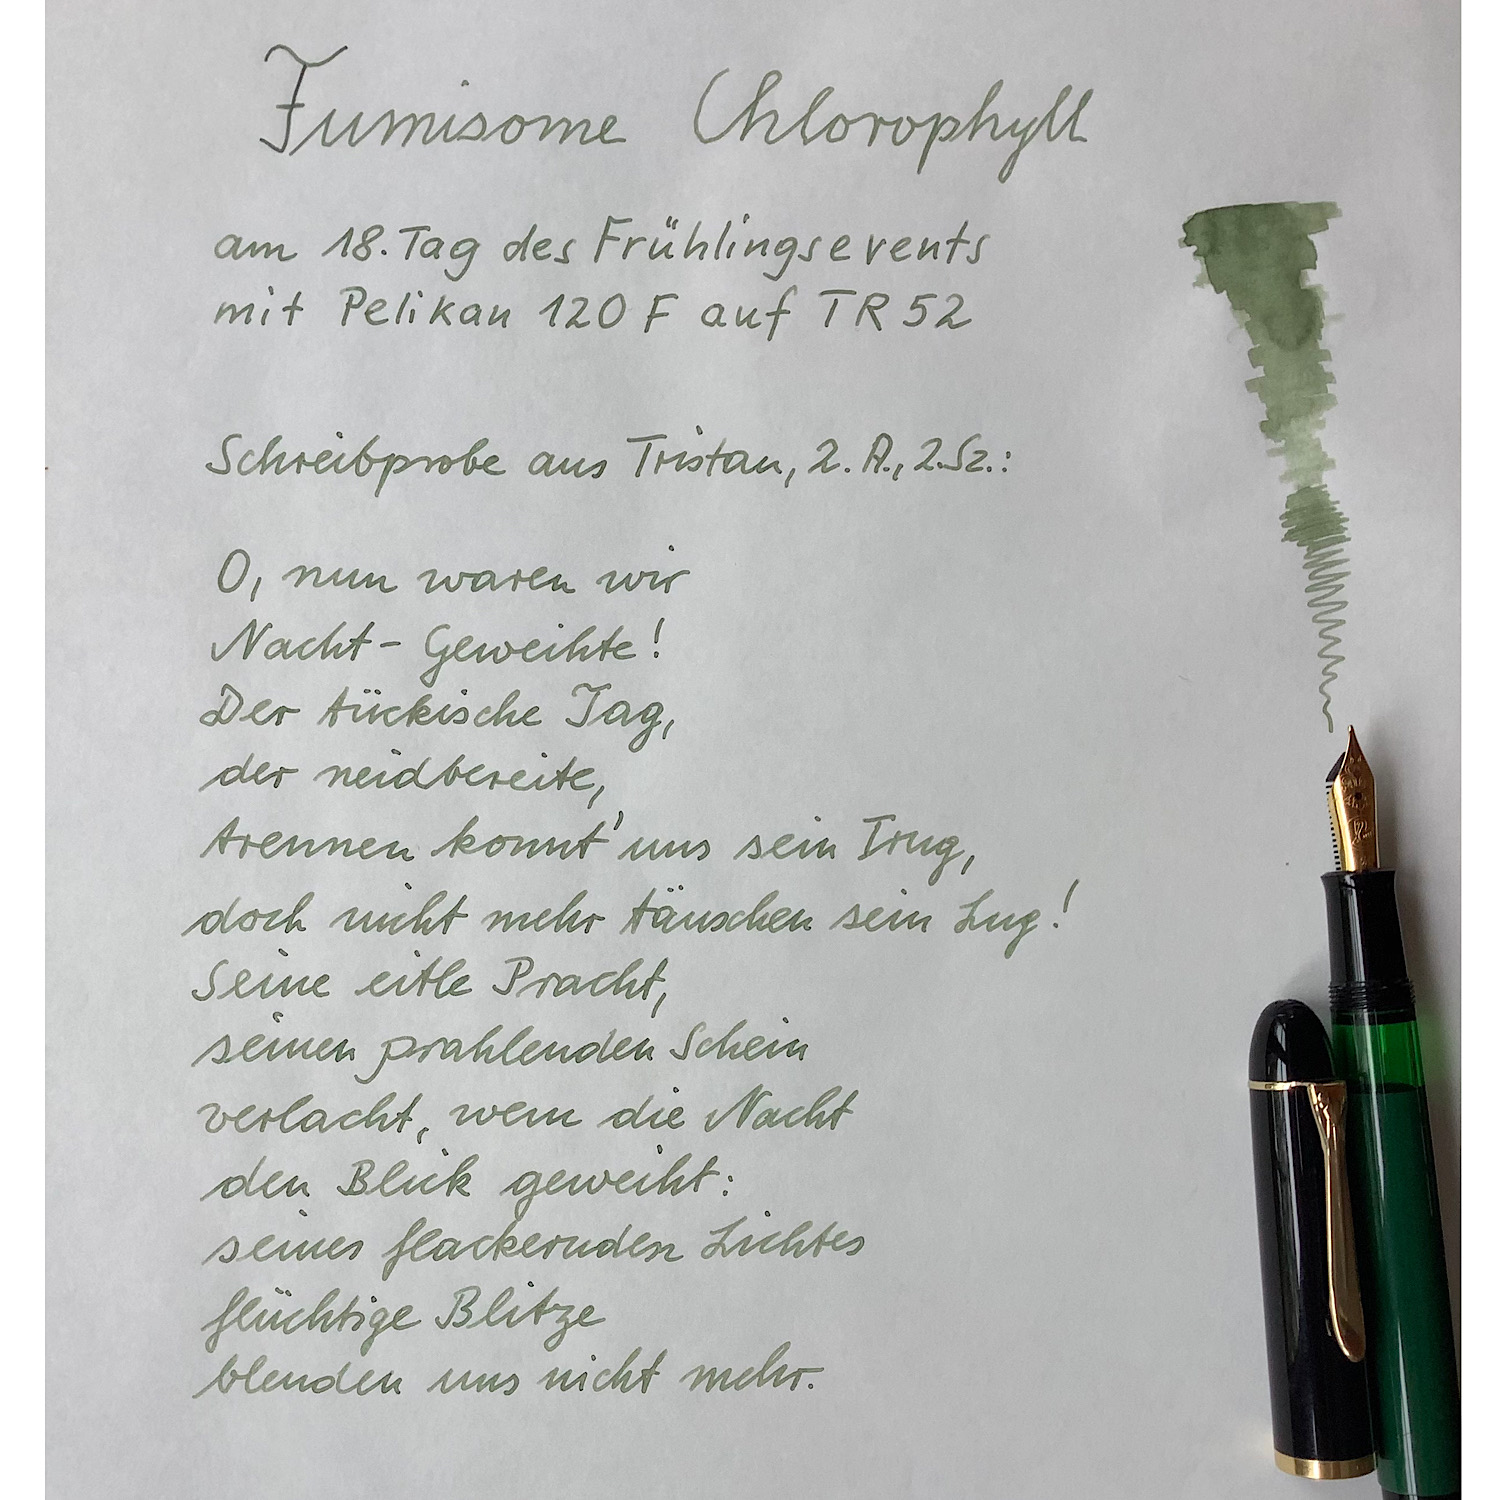 Fumisome Chlorophyll
am 18. Tag des Frühlingsevents
mit Pelikan 120 F auf TR 52
Schreibprobe aus Tristan, 2. A., 2. Sz.:
O, nun waren wir
Nacht-Geweihte!
Der tückische Tag,
der neidbereite,
trennen konnt' uns sein Trug,
doch nicht mehr täuschen sein Lug!
Seine eitle Pracht,
seinen prahlenden Schein
verlacht, wem die Nacht
den Blick geweiht:
seines flackernden Lichtes
flüchtige Blitze
blenden uns nicht mehr.